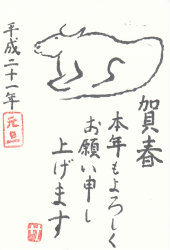 賀春
本年もよろしく
お願い申し
上げます
平成二十一年
元旦